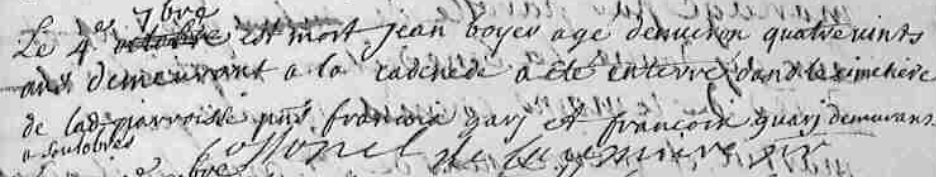 7bre
Le 4e octobre est mort jean boyer age denviron quatrevints
ans demeurant a la cadenede a ete enterré dans le cimetiere
de lad parroisse pnts francois gary et francois guary demeurans
a soulobres